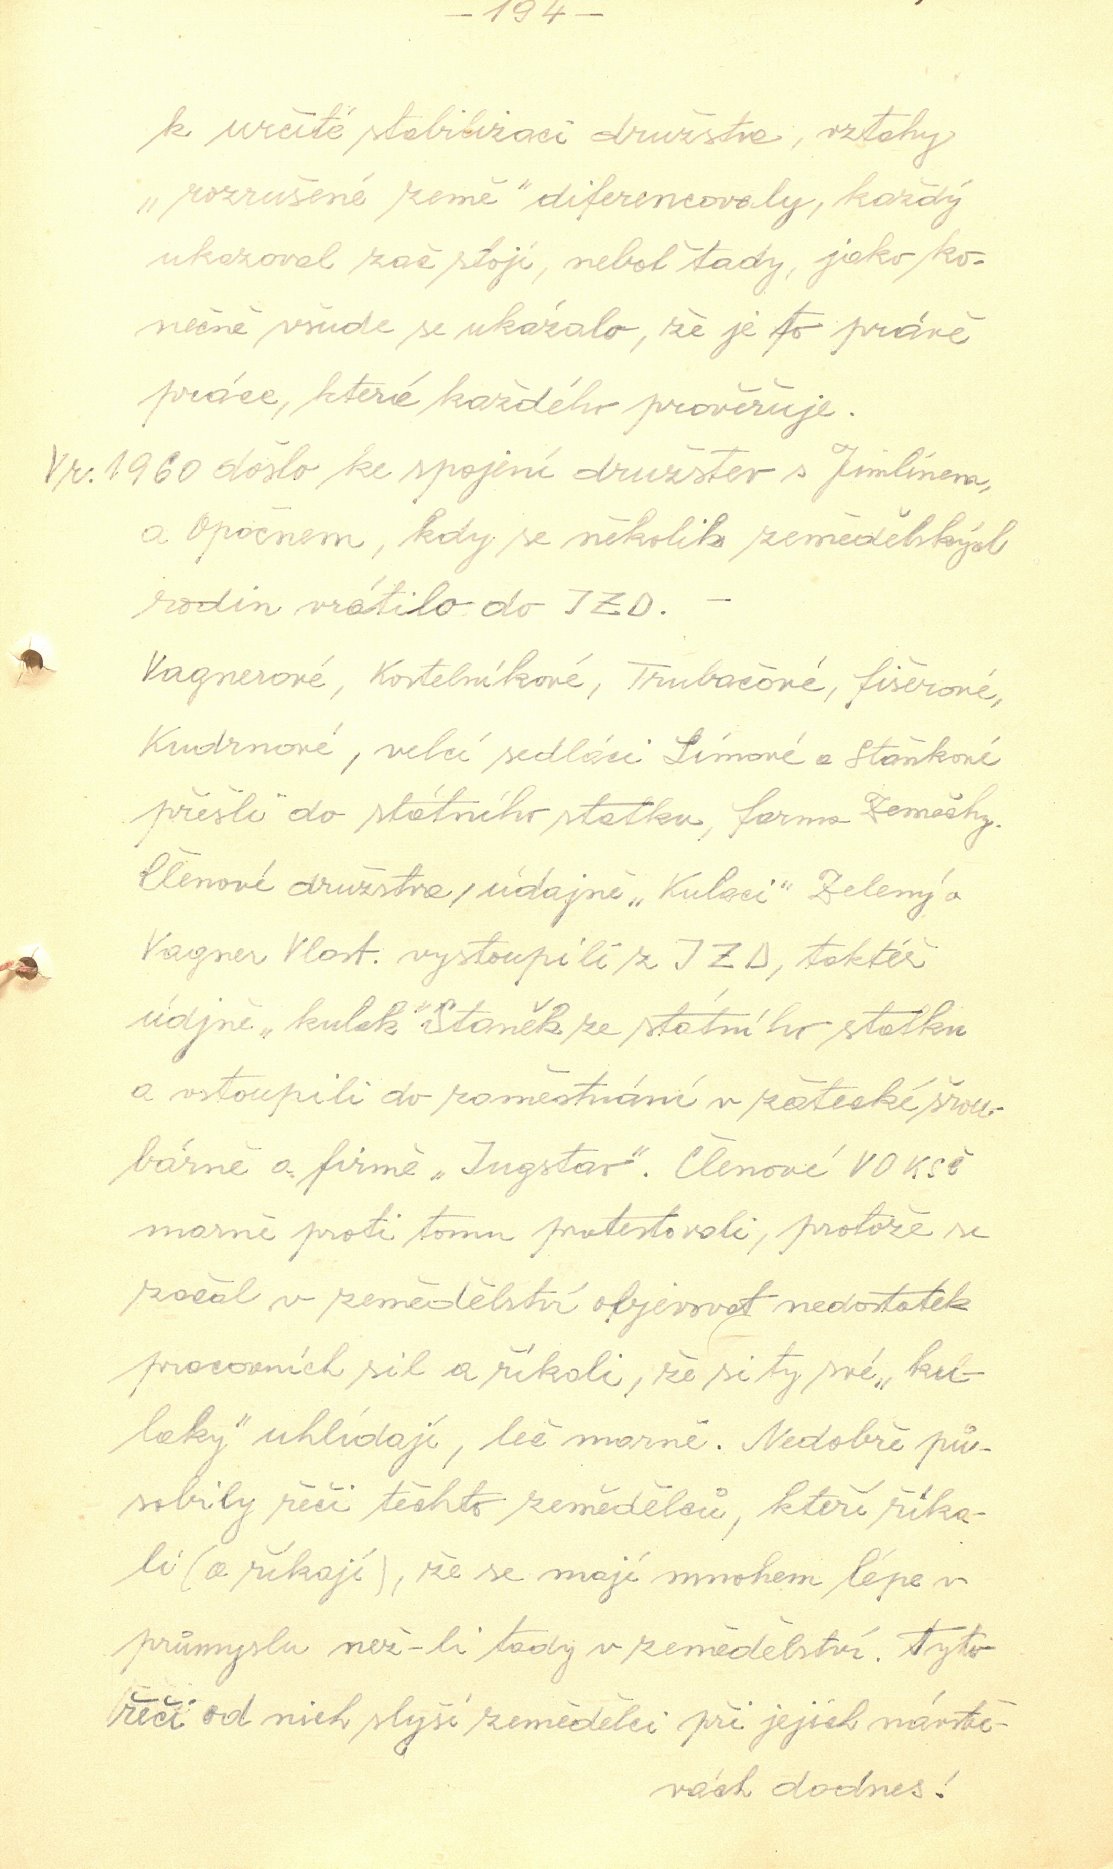 – 194 –
k určité stabilizaci družstva, vztahy
„rozrušené země" diferencovaly, každý
ukazoval zač stojí, neboť tady, jako ko-
nečně všude se ukázalo, že je to právě
práce, která každého prověřuje.
V r. 1960 došlo ke spojení družstev s Jimlínem,
a Opočnem, kdy se několik zemědělských
rodin vrátilo do JZD. –
Vagnerové, Kostelníkové, Trubačové, fišerové,
Kudrnové, velcí sedláci Šímové a Staňkové
přešli do státního statku, farma Zeměchy.
Členové družstva, údajně „Kulaci" Zelený a
Vagner Vlast. vystoupili z JZD, taktéž
údjně „kulak" Staněk ze státního statku
a vstoupili do zaměstnání v žatecké šrou-
bárně a firmě „Jugstav". Členové VO KSČ
marně proti tomu protestovali, protože se
začal v zemědělství objevovat nedostatek
pracovních sil a říkali, že si ty své „ku-
laky" uhlídají, leč marně. Nedobře pů-
sobily řeči těchto zemědělců, kteří říka-
li (a říkají), že se mají mnohem lépe v
průmyslu než-li tady v zemědělství. Tyto
řeči od nich slyší zemědělci při jejich návště-
vách dodnes!